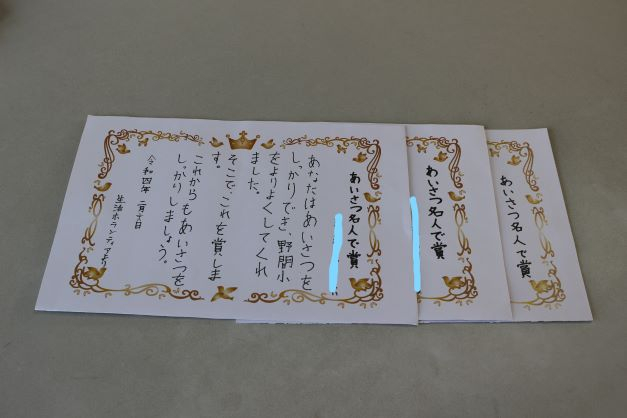 あいさつ名人で賞
あなたはあいさつを
しっかりでき、野間小
をよりよくしてくれ
ました。
そこで、これを賞しま
す。
これからもあいさつを
しっかりしましょう。
令和四年 二月十日
生活ボランティアより
あいさつ名人で賞
あいさつ名人で賞